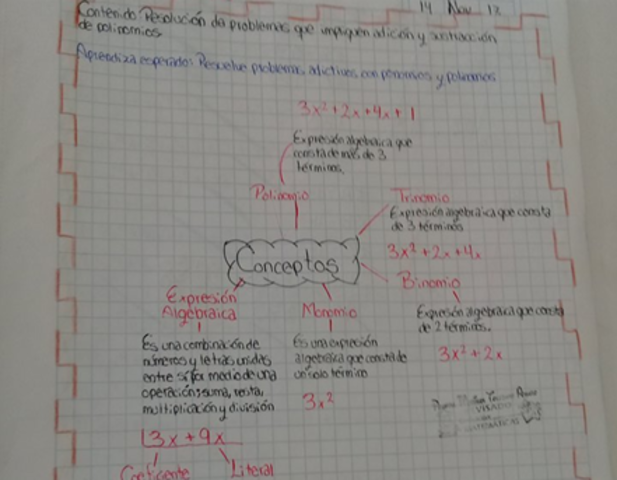 14 Nov 12
Contenido: Resolución de problemas que impliquen adición y sustracción
de polinomios
Aprendiza esperado: Resuelve problemas aditivos con monomios y polinomios
3x²+2x+4x+1
Expresión algebraica que
consta de más de 3
términos.
Polinomio
Trinomio
Expresión algebraica que consta
de 3 términos
3x²+2x+4x
Conceptos
Binomio
Expresión algebraica que consta
de 2 términos.
3x²+2x
Expresión
Algebraica
Es una combinación de
números y letras unidas
entre sí por medio de una
operación: suma, resta,
multiplicación y división
3x+9x
Coeficente
Literal
Monomio
Es una expresión
algebraica que consta de
un solo término
3x²
VISADO
MATEMÁTICAS